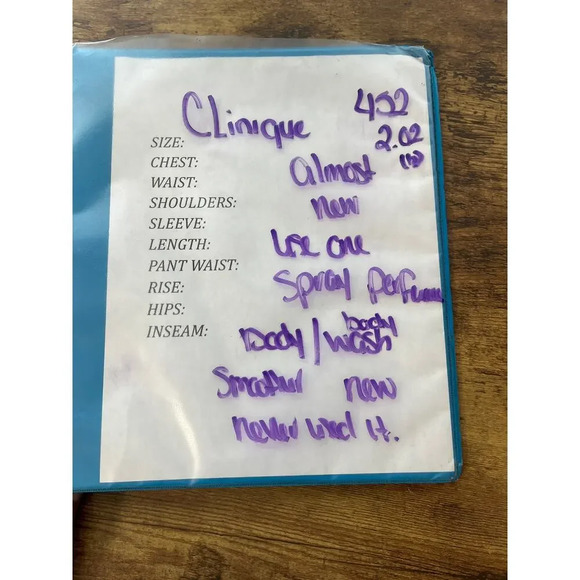 CLinique 452
SIZE: 2.02
CHEST: almost
WAIST:
SHOULDERS: new
SLEEVE:
LENGTH: use one
PANT WAIST:
RISE: Spray Perfume
HIPS:
INSEAM: body
Body / wash
new
never used it.